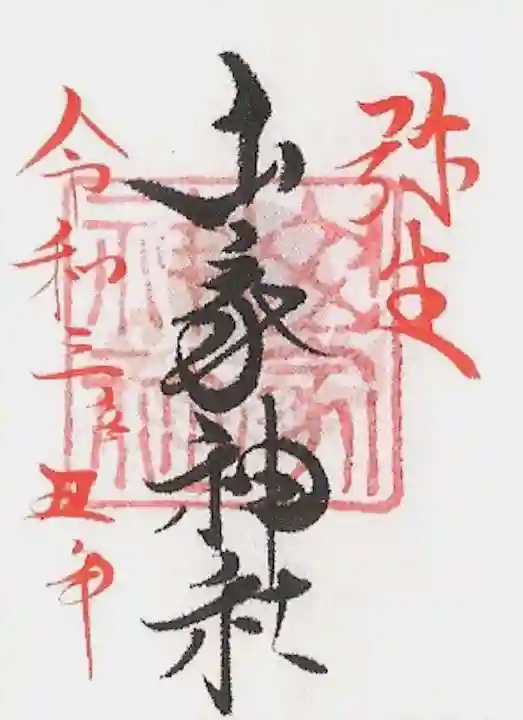 弥生
山家神社
令和三辛丑年